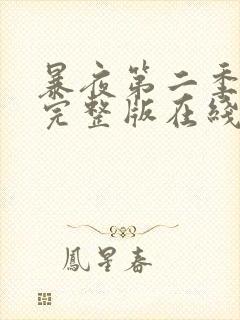 暴夜第二季
完整版在綫
鳳星春